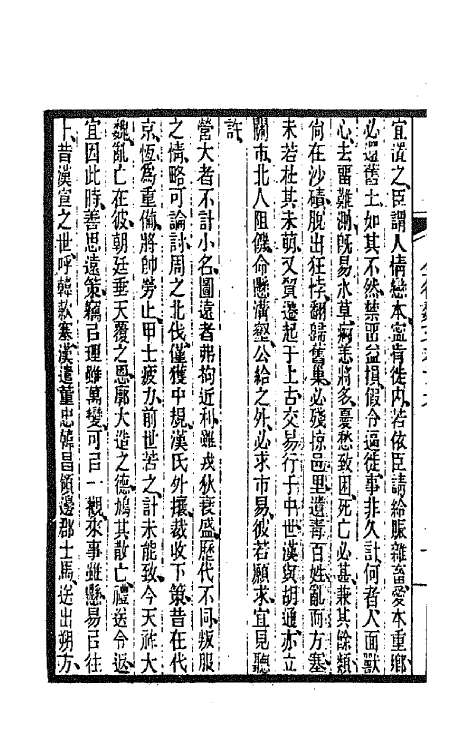 宜置之、臣謂人情戀本、寧肯徙內、若依臣請、給賑雜畜、愛本重鄉、
必還舊土、如其不然、禁留益損、假令逼徙、事非久計、何者、人面獸
心、去留難測、旣易水草、痾恙將多、憂愁致困、死亡必甚、兼其餘類
尙在沙磧、脫出狂悖、翻歸舊巢、必殘掠邑里、遺害百姓、亂而方塞、
未若杜其未萌、又貿遷起于上古、交易行于中世、漢與胡通、亦立
關市、北人阻饑、命懸溝壑、公給之外、必求市易、彼若願求、宜見聽
許、
營大者不計小名、圖遠者弗拘近利、雖戎狄衰盛、歷代不同、叛服
之情、略可論討、周之北伐、僅獲中規、漢氏外攘、裁收下策、昔在代
京、恆爲重備、將帥勞止、甲士疲力、前世苦之、計未能致、今天祚大
魏、亂亡在彼、朝廷垂天覆之恩、廓大造之德、鳩其散亡、禮送令返、
宜因此時、善思遠策、竊㠯理雖萬變、可㠯一觀、來事雖懸、易㠯往
卜、昔漢宣之世、呼韓款塞、漢遣董忠韓昌領邊郡士馬、送出朔方、